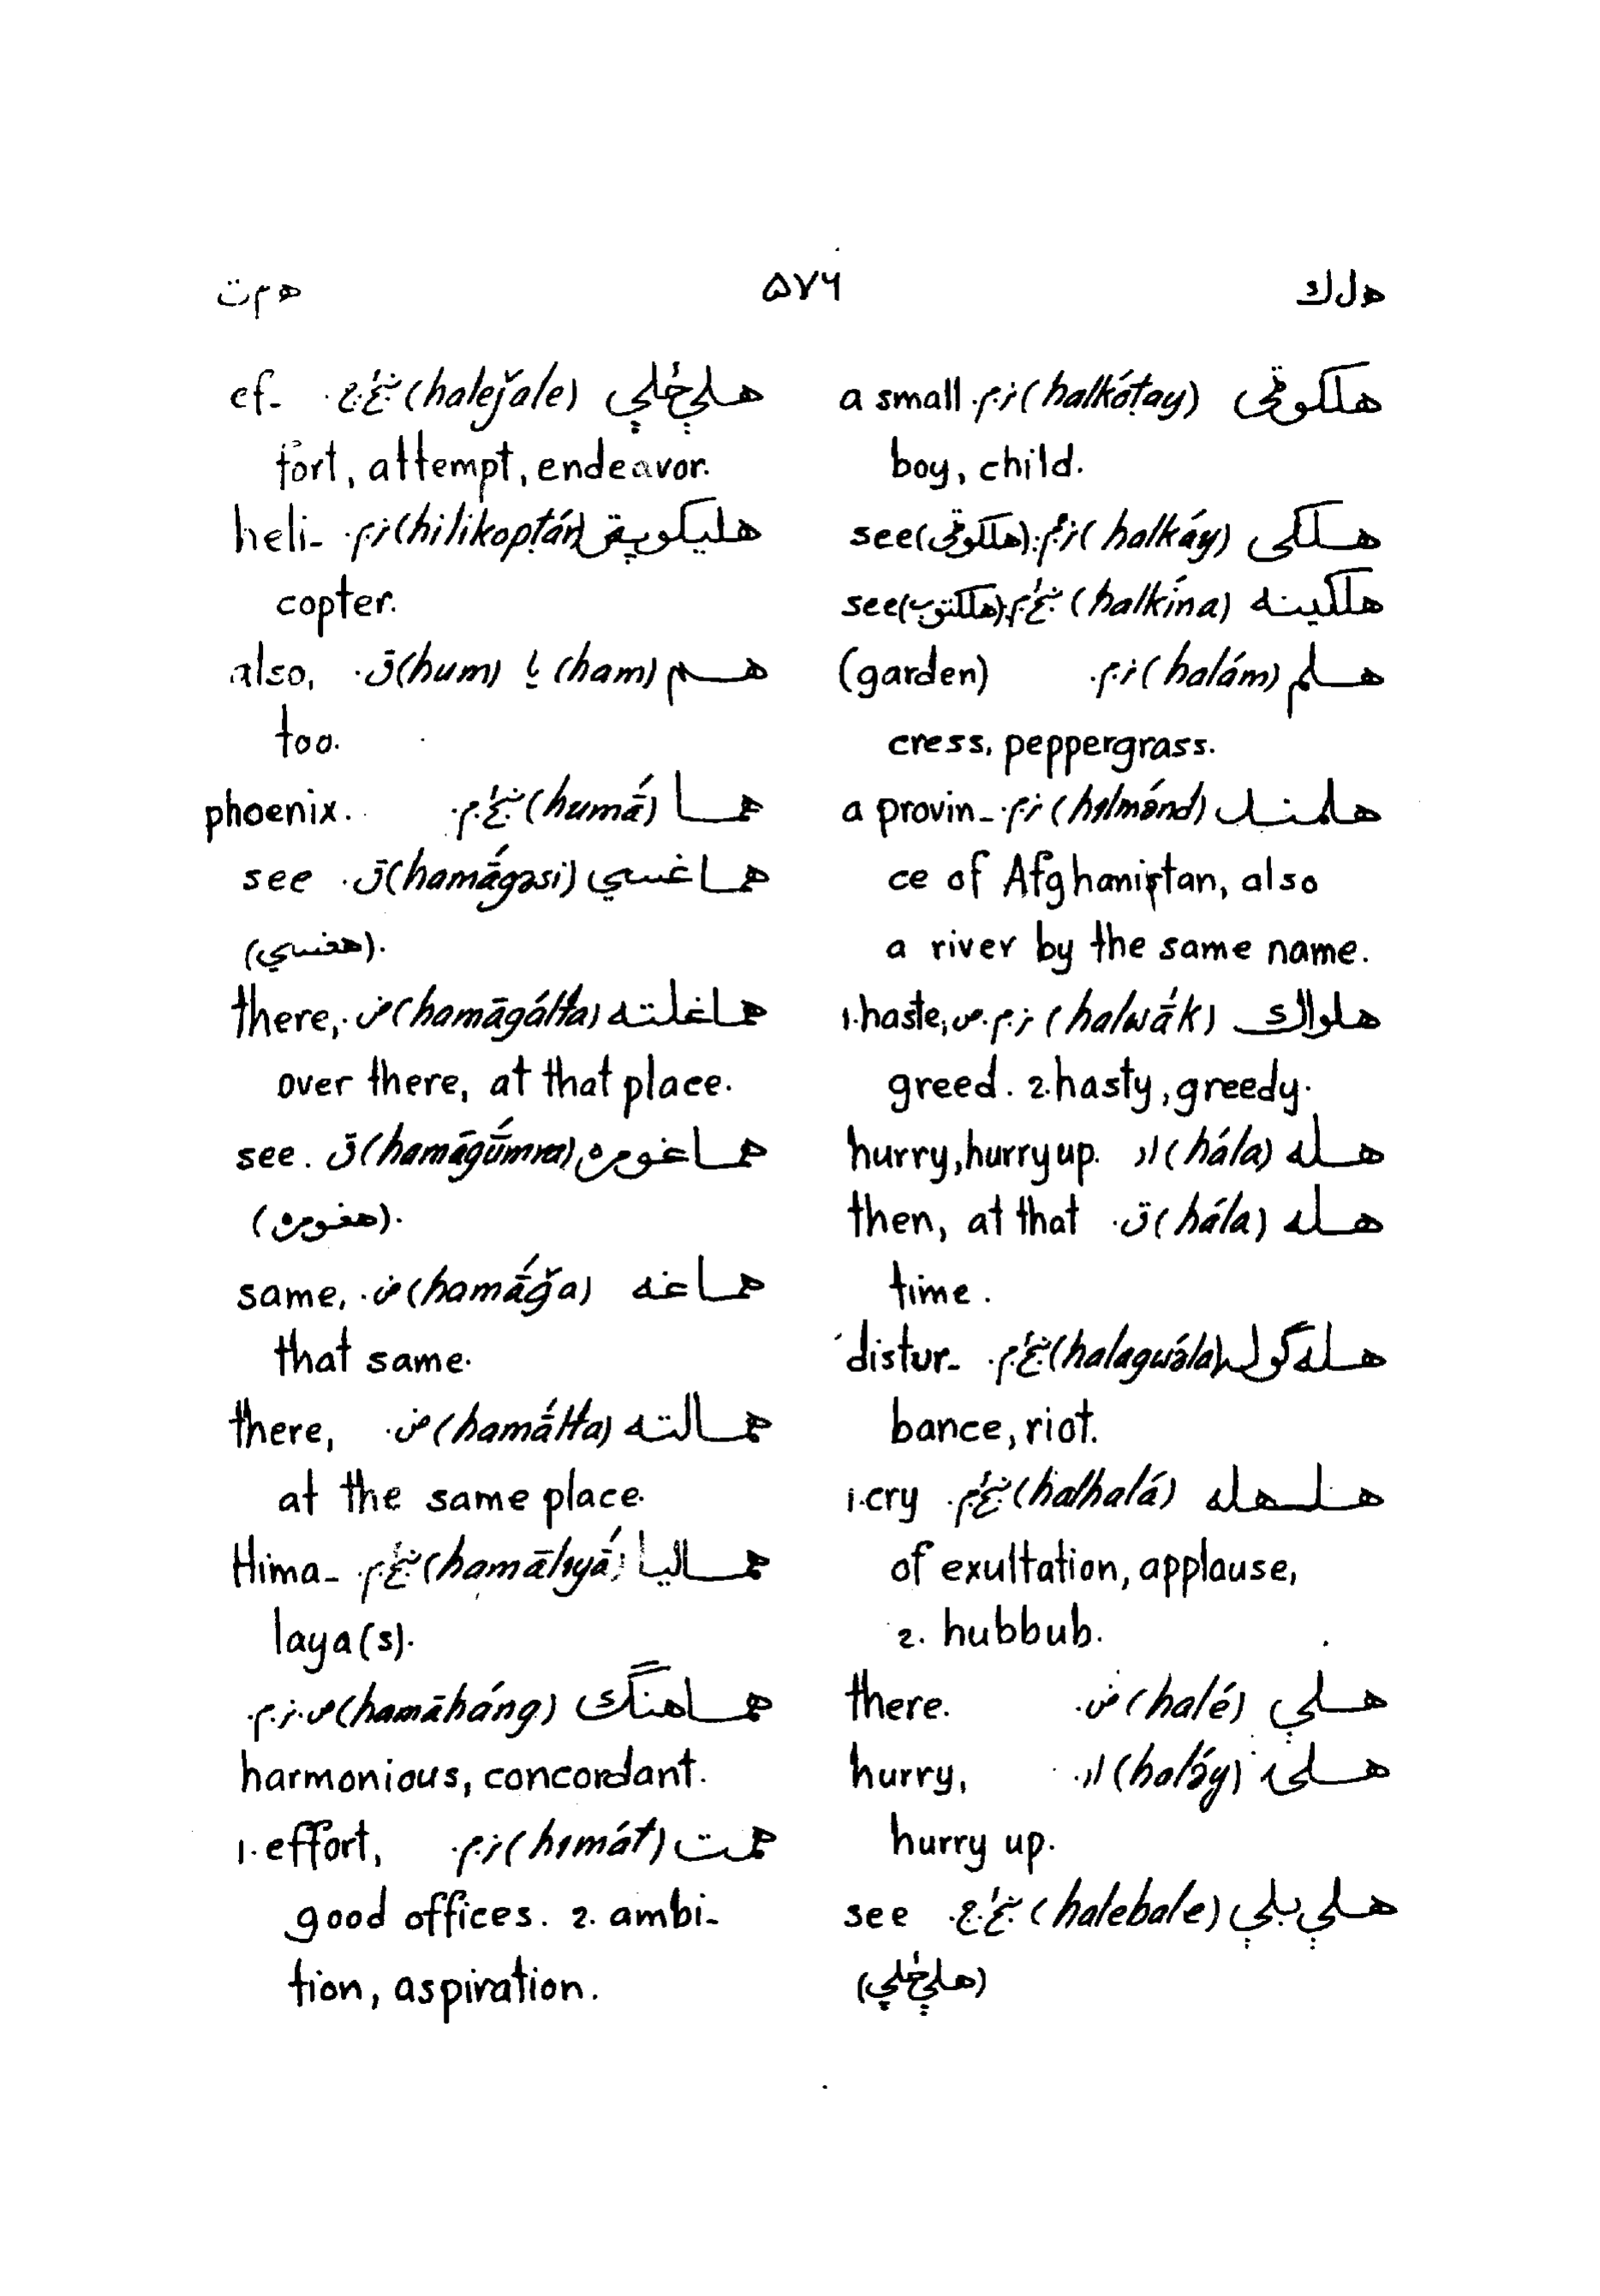 هلك ۵۷۶ همت
هلکوټی (halkóṭay) ن.م. a small
boy, child.
هلکی (halkáy) ن.م. (هلکوټی) see
هلکينه (halkína) ښځ.م. see
هلم (halám) ن.م. (garden)
cress, peppergrass.
هلمند (hilmánd) ن.م. a provin-
ce of Afghanistan, also
a river by the same name.
هلواك (halwā́k) ن.م.ص. 1.haste,
greed. 2.hasty, greedy.
هله (hála) ار hurry, hurry up.
هله (hála) ق. then, at that
time.
هله‌ګوله (halagwəla) ښځ.م. distur-
bance, riot.
هلهله (halhalá) ښځ.م. 1.cry
of exultation, applause,
2. hubbub.
هلې (halé) ض. there.
هلۍ (haləy) ار. hurry,
hurry up.
هلې‌بلې (halebale) ښځ.ج. see
(هلې‌ځلې)
هلې‌ځلې (haleǰale) ښځ.ج. ef-
fort, attempt, endeavor.
(hilikoptár) ن.م. heli-
copter.
هم (ham) يا (hum) ق. also,
too.
هما (humā́) ښځ.م. phoenix.
هماغسي (hamā́gəsi) ق. see
(هغسي).
هماغلته (hamāgálta) ض. there,
over there, at that place.
هماغومره (hamāgū́mra) ق. see.
(هغومره).
هماغه (hamā́ğa) ض. same,
that same.
همالته (hamā́lta) ض. there,
at the same place.
هماليا (hamāliyā́) ښځ.م. Hima-
laya(s).
هماهنګ (hamāháng) ص.ن.م.
harmonious, concordant.
همت (himát) ن.م. 1.effort,
good offices. 2. ambi-
tion, aspiration.